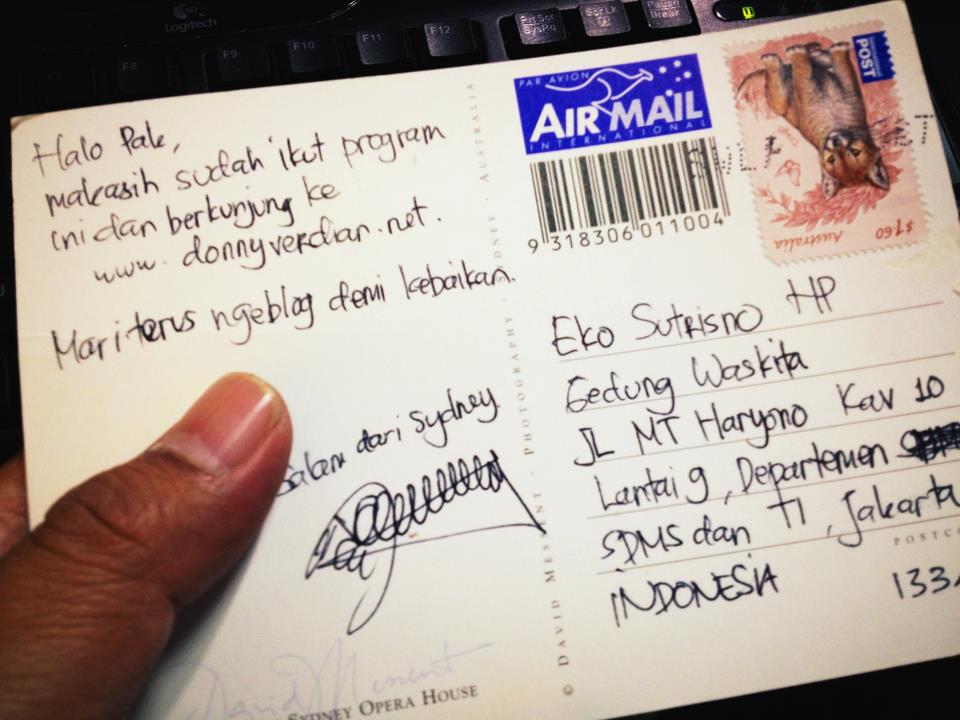 Logitech
F7
F8
F9
F10
F11
F12
Prt Scr
SysRq
Scr Lk
Pause
Break
Halo Pak,
makasih sudah ikut program
ini dan berkunjung ke
www.donnyverdian.net.
Mari terus ngeblog demi kebaikan.
Salam dari sydney
David Messent
SYDNEY OPERA HOUSE
© DAVID MESSENT · PHOTOGRAPHY · SYDNEY · AUSTRALIA
PAR AVION
AIR MAIL
INTERNATIONAL
9 318306 011004
INTERNATIONAL
POST
Australia
$1.60
Eko Sutrisno HP
Gedung Waskita
JL MT Haryono Kav 10
Lantai 9, Departemen
SDMS dan TI, Jakarta
POSTC
INDONESIA 133